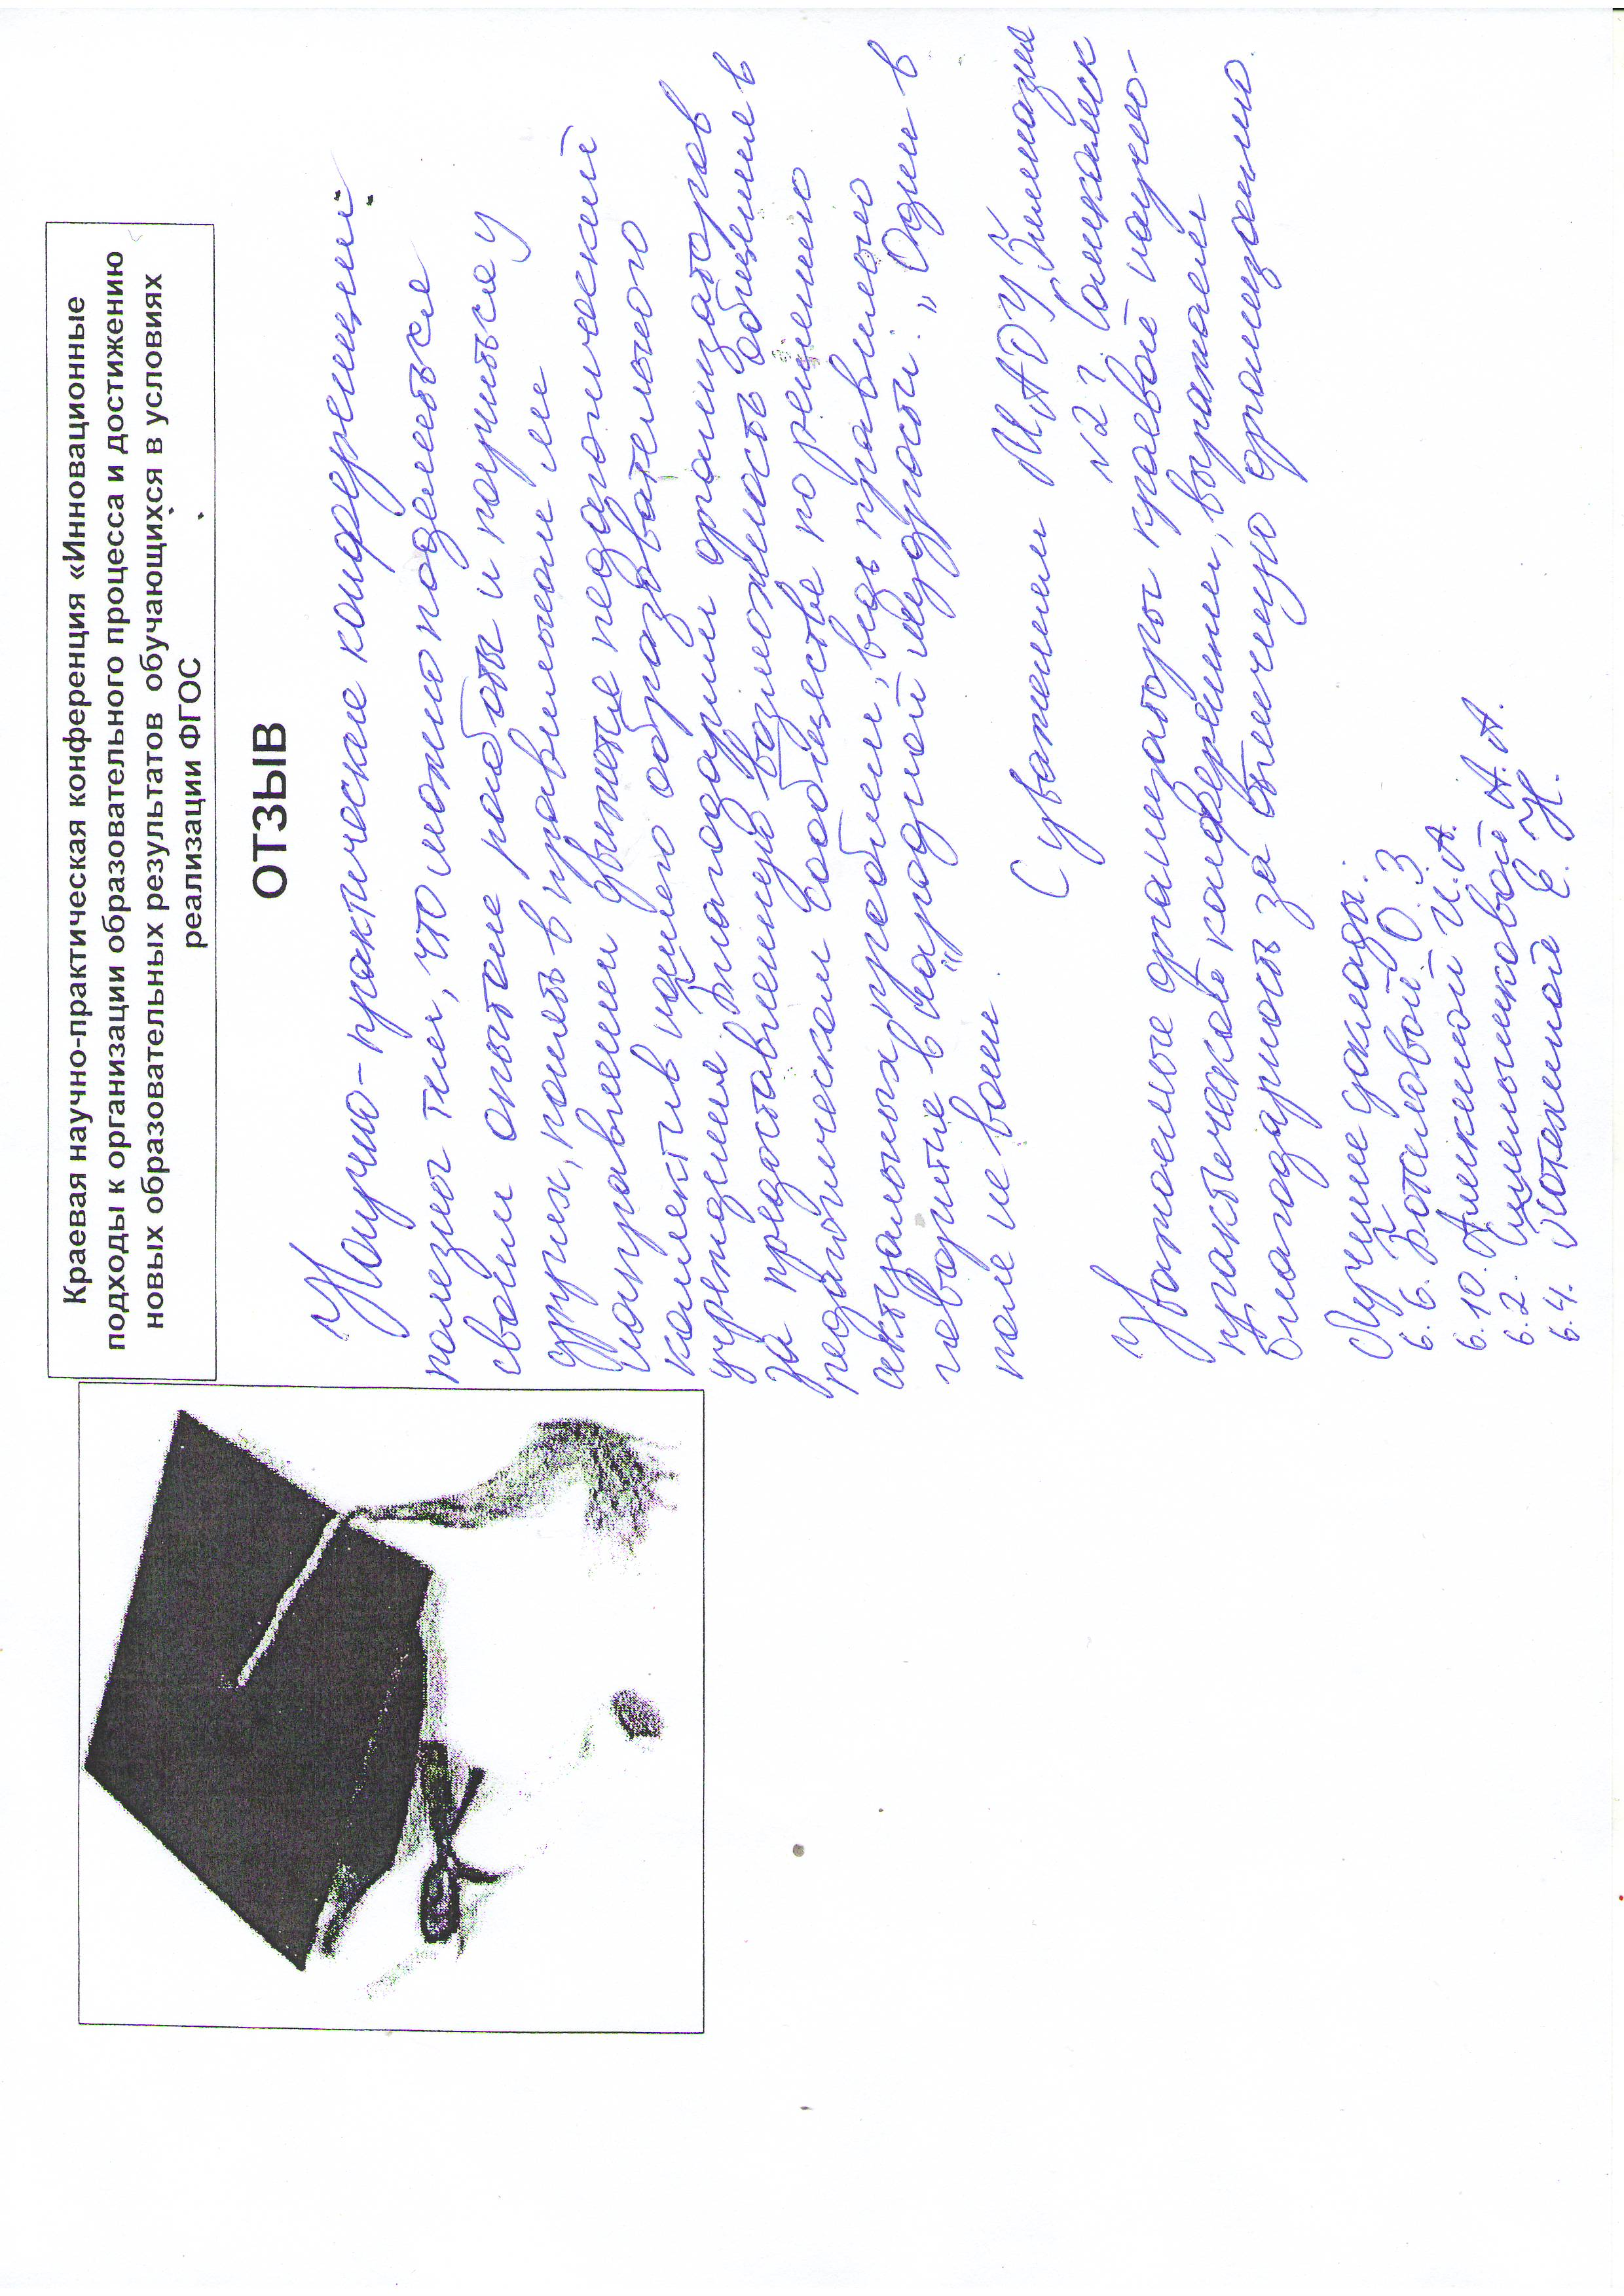 Краевая научно-практическая конференция «Инновационные
подходы к организации образовательного процесса и достижению
новых образовательных результатов обучающихся в условиях
реализации ФГОС
ОТЗЫВ
Научно-практические конференции
полезны тем, что можно поделиться
своим опытом работы и поучиться у
других, понять в правильном ли
направлении движется педагогический
коллектив нашего образовательного
учреждения. Благодарим организаторов
за предоставленную возможность общения в
педагогическом сообществе по решению
актуальных проблем, ведь правильно
говорится в народной мудрости: „Один в
поле не воин“.
С уважением МАДУ Гимназия
№2 г. Соликамск
Уважаемые организаторы краевой научно-
практической конференции, выражаем
благодарность за отличную организацию.
Лучшие доклады:
6.6. О.З.
6.10. И.А.
6.2. А.А.
6.4. Е.Н.